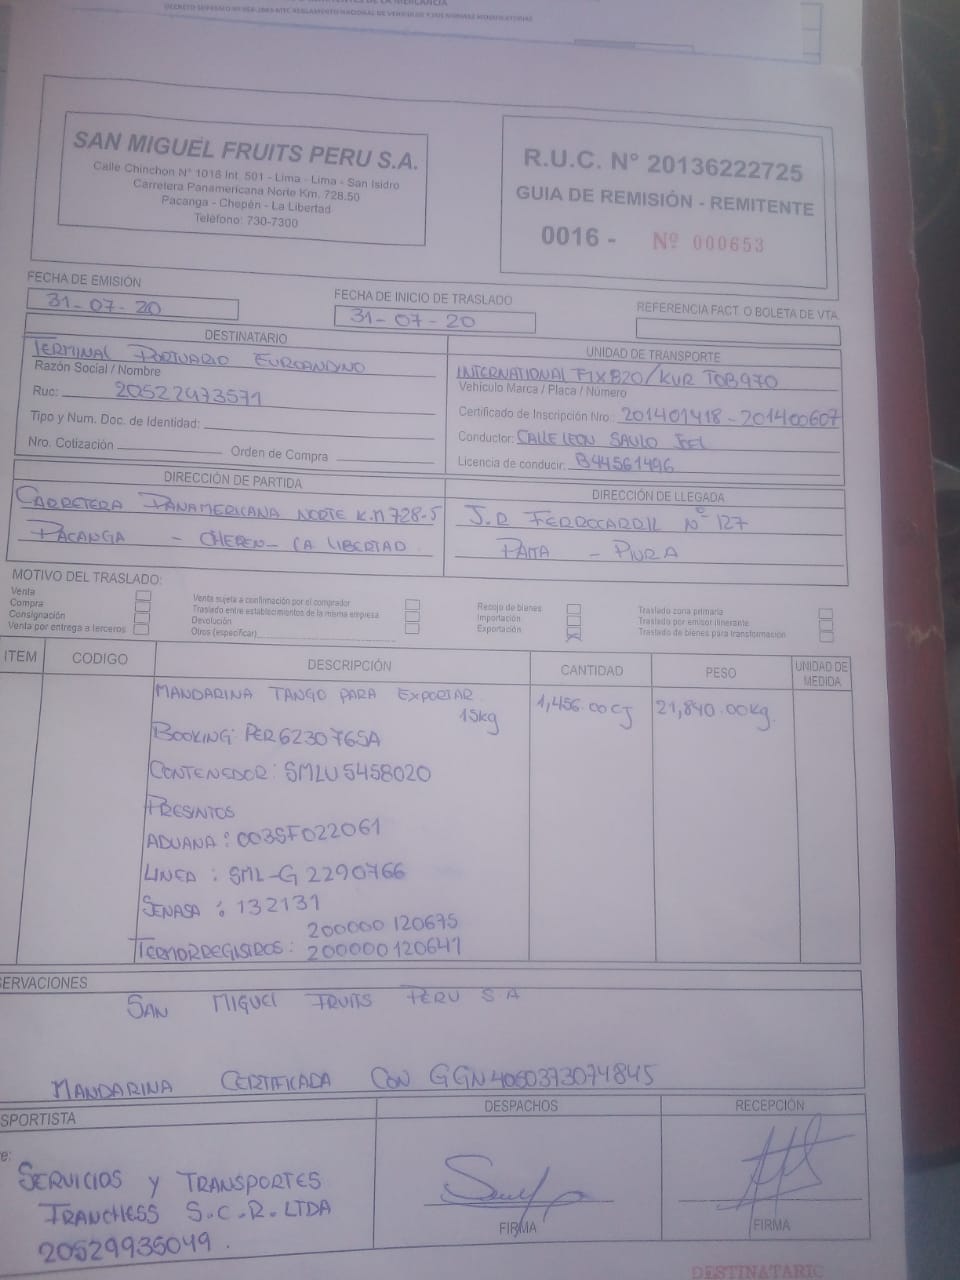 DECRETO SUPREMO Nº 058-2003-MTC REGLAMENTO NACIONAL DE VEHICULOS Y SUS NORMAS MODIFICATORIAS
SAN MIGUEL FRUITS PERU S.A.
Calle Chinchon N° 1018 Int. 501 - Lima - Lima - San Isidro
Carretera Panamericana Norte Km. 728.50
Pacanga - Chepén - La Libertad
Teléfono: 730-7300
R.U.C. N° 20136222725
GUIA DE REMISIÓN - REMITENTE
0016 - Nº 000653
FECHA DE EMISIÓN
31-07-20
FECHA DE INICIO DE TRASLADO
31-07-20
REFERENCIA FACT. O BOLETA DE VTA.
DESTINATARIO
TERMINAL PORTUARIO EUROANDINO
Razón Social / Nombre
Ruc: 20522473571
Tipo y Num. Doc. de Identidad:
Nro. Cotización Orden de Compra
UNIDAD DE TRANSPORTE
INTERNATIONAL F1X820/KVR TOB970
Vehículo Marca / Placa / Número
Certificado de Inscripción Nro.: 201401418-201400607
Conductor: CALLE LEON SAULO JOEL
Licencia de conducir: B44561496
DIRECCIÓN DE PARTIDA
CARRETERA PANAMERICANA NORTE K.M 728-5
PACANGA - CHEPEN- LA LIBERTAD
DIRECCIÓN DE LLEGADA
J.R FERROCARRIL Nº 127
PAITA - PIURA
MOTIVO DEL TRASLADO:
Venta
Compra
Consignación
Venta por entrega a terceros
Venta sujeta a confirmación por el comprador
Traslado entre establecimientos de la misma empresa
Devolución
Otros (especificar)
Recojo de bienes
Importación
Exportación
Traslado zona primaria
Traslado por emisor itinerante
Traslado de bienes para transformación
ITEM CODIGO DESCRIPCIÓN CANTIDAD PESO UNIDAD DE MEDIDA
MANDARINA TANGO PARA EXPORTAR 1,456.00CJ 21,840.00kg.
15kg
BOOKING: PER623076SA
CONTENEDOR: SMLU5458020
PRESINTOS
ADUANA : 003SF022061
LINEA : SML-G 2290766
SENASA : 132131
200000 120675
TERMORREGISTROS: 200000120641
SERVACIONES
SAN MIGUEL FRUITS PERU S A
MANDARINA CERTIFICADA CON GGN4060373074845
SPORTISTA
DESPACHOS
RECEPCIÓN
e:
SERVICIOS Y TRANSPORTES
TRANCHESS S.C.R.LTDA
20529935049.
FIRMA
FIRMA
DESTINATARIO